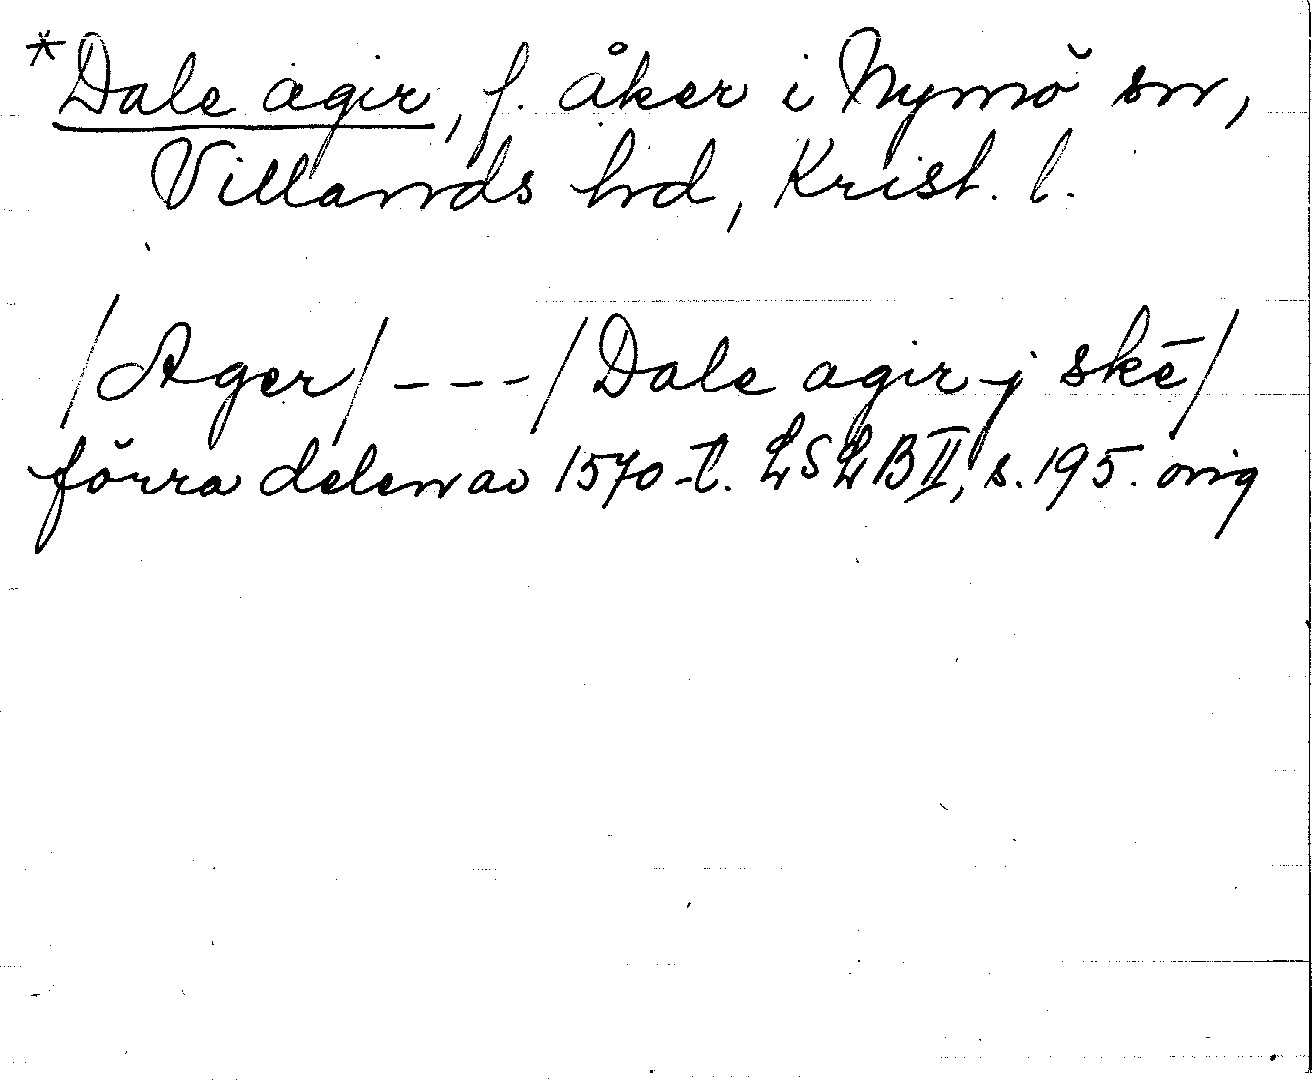 *Dale agir, f. åker i Nymö sn,
Villands hd, Krist. l.
/Ager/ - - - /Dale agir j skē/
förra delen av 1570-t. LSLB II, s. 195. orig